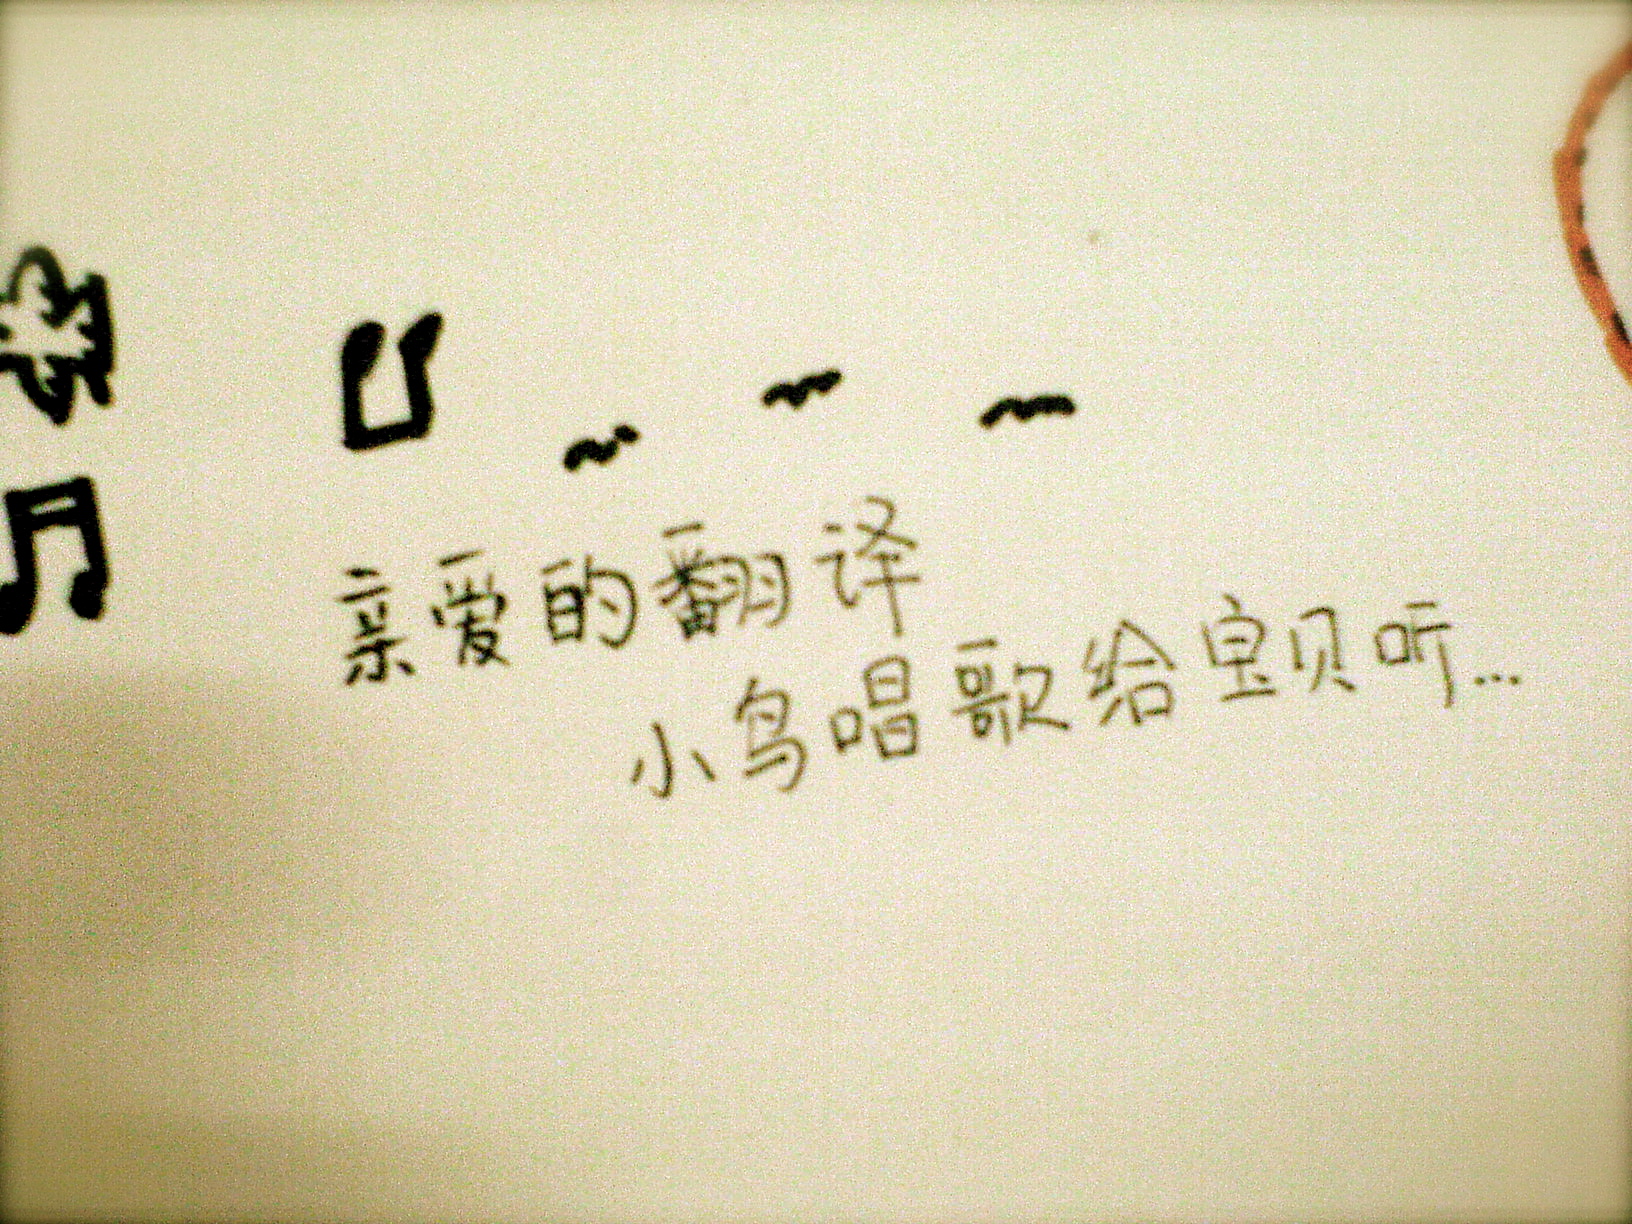 亲爱的翻译
小鸟唱歌给宝贝听...